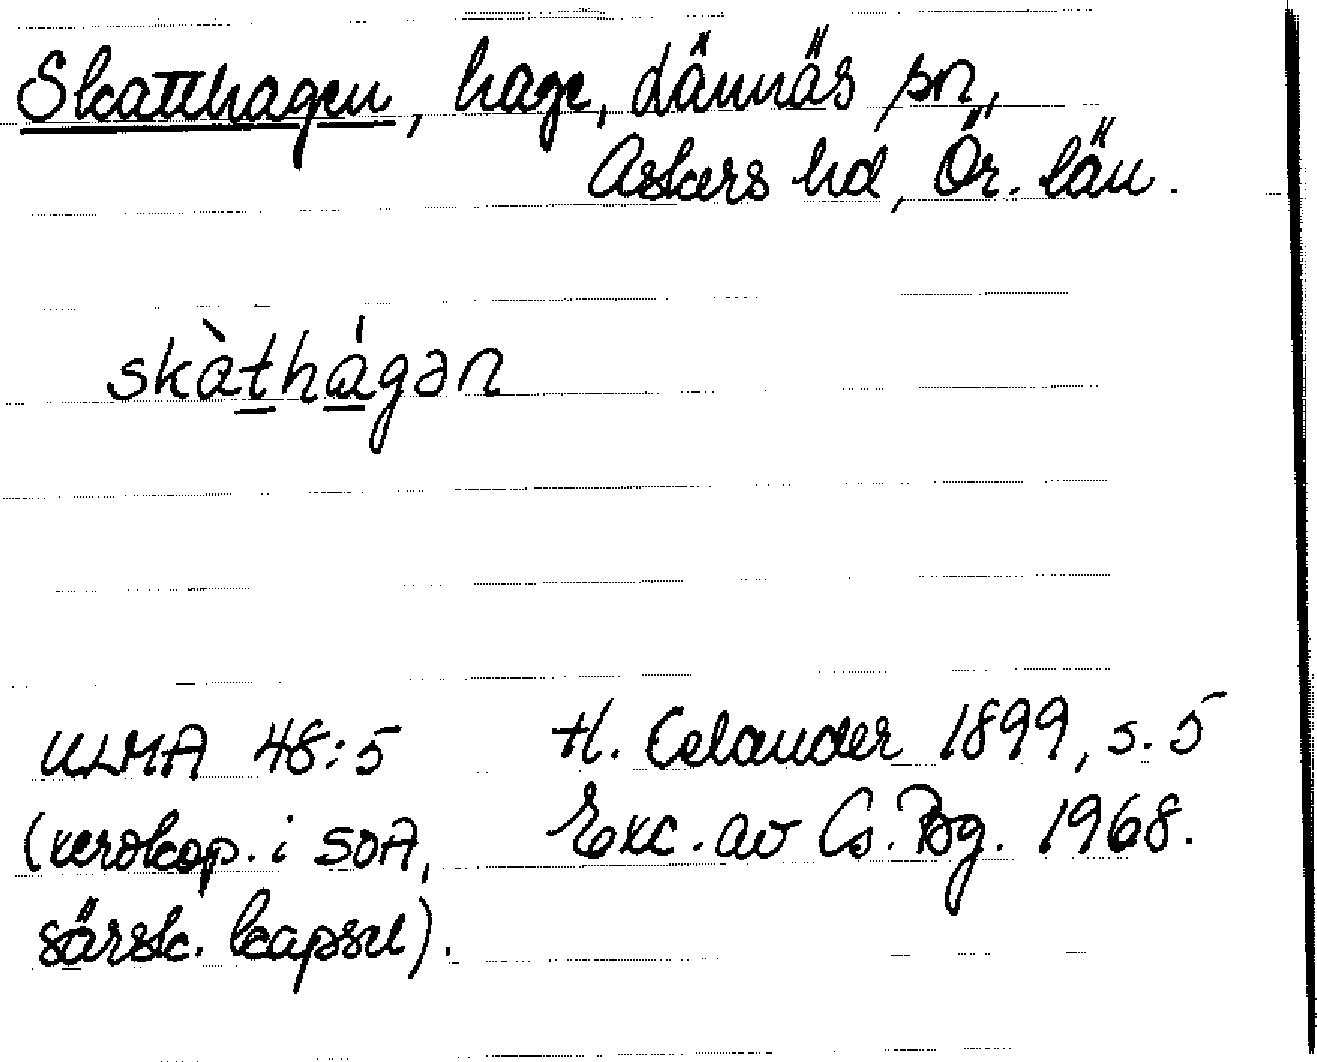 Skatthagen, hage, Lännäs sn,
Askers hd, Ör. län.
skàt̲há̲gən
ULMA 48:5 H. Celander 1899, s. 5
(xerokop. i SOA, Exc. av Cs. Bg. 1968.
särsk. kapsel).